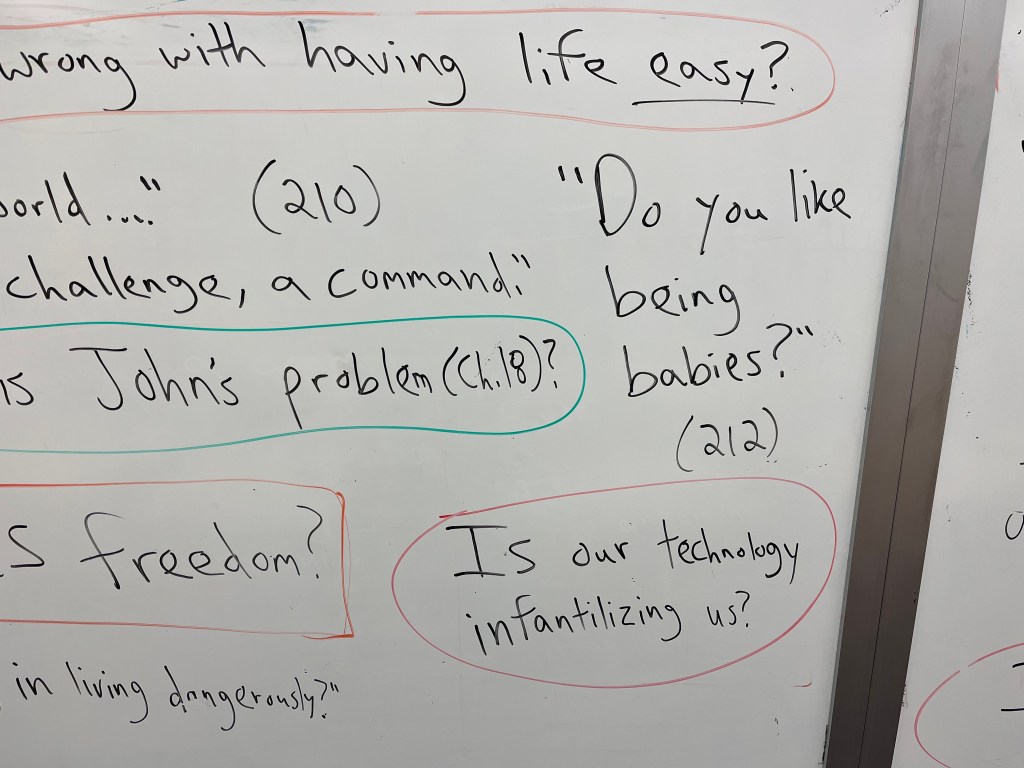 wrong with having life easy?
world ...." (210)
challenge, a command."
"Do you like
being
babies?"
(212)
John's problem (Ch.18)?
freedom?
Is our technology
infantilizing us?
in living dangerously?"